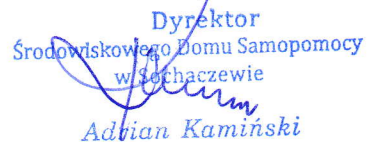 Dyrektor
Środowiskowego Domu Samopomocy
w Sochaczewie
Adrian Kamiński